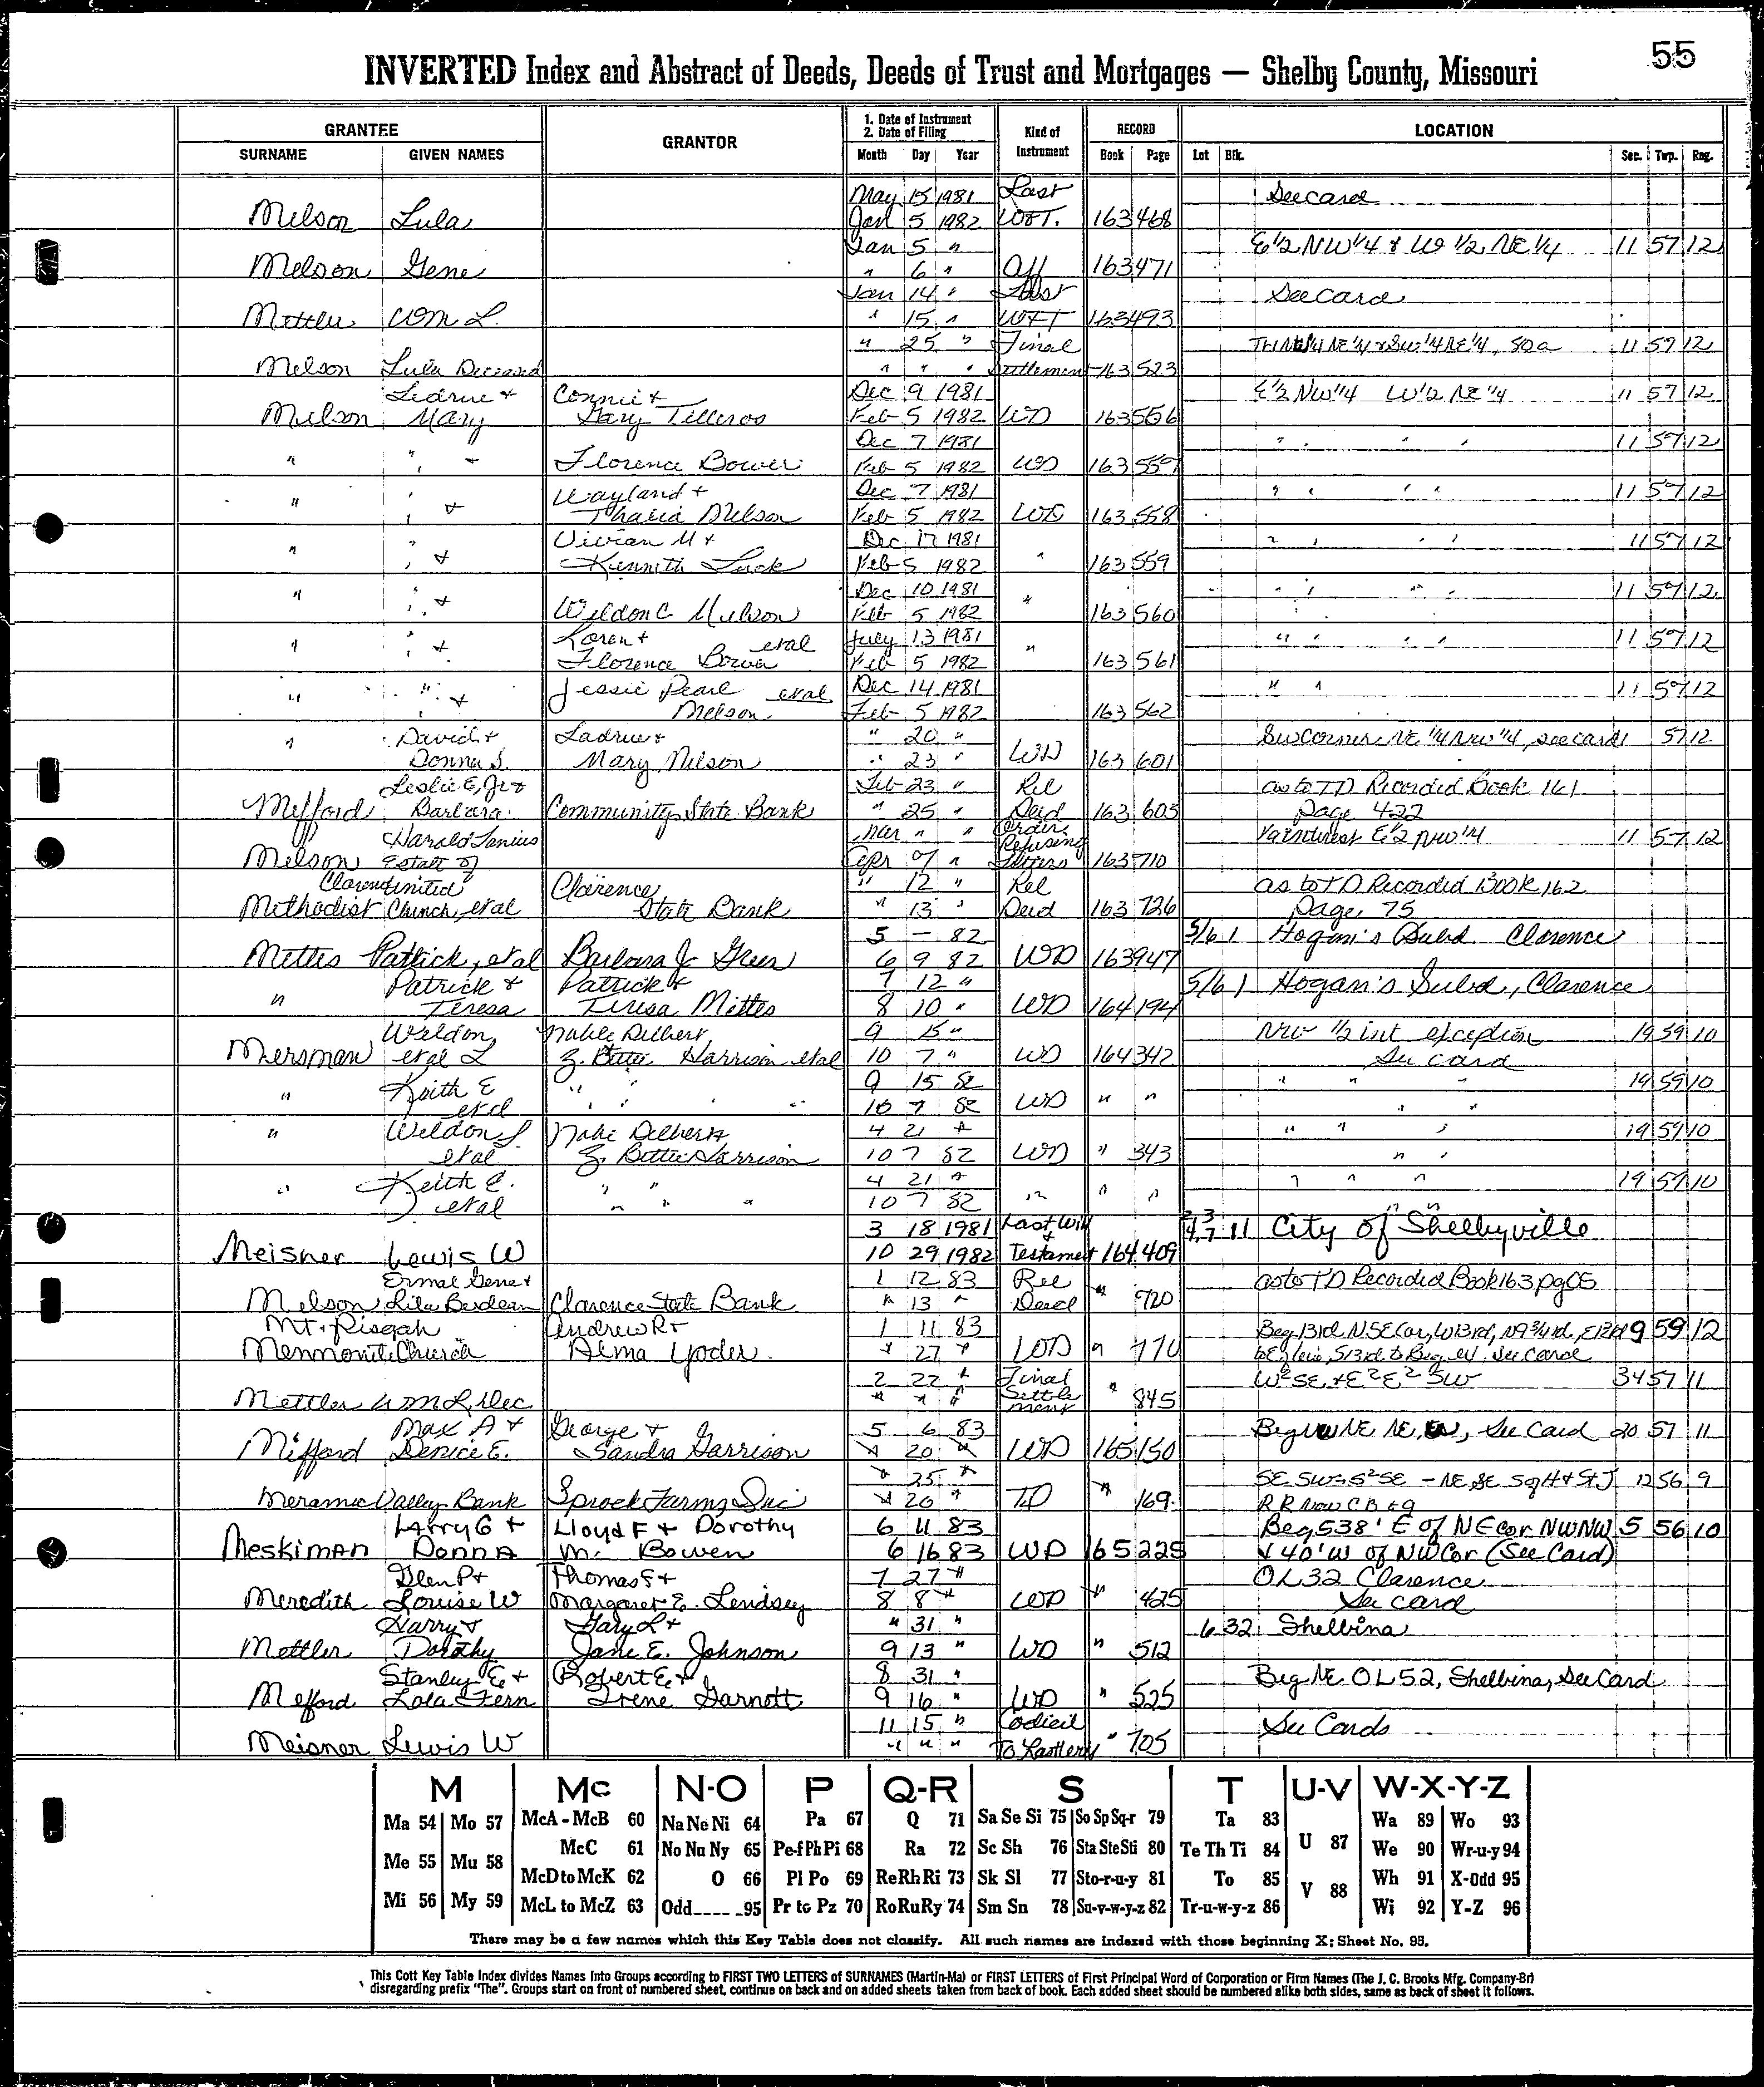 55
INVERTED Index and Abstract of Deeds, Deeds of Trust and Mortgages — Shelby County, Missouri
GRANTEE GRANTOR 1. Date of Instrument 2. Date of Filing Kind of Instrument RECORD LOCATION
SURNAME GIVEN NAMES Month Day Year Book Page Lot Blk. Sec. Twp. Rng.
May 15 1981 Last See card
Melson Lula Jan 5 1982 W&T. 163 468
Jan 5 " E 1/2 NW 1/4 & W 1/2 NE 1/4 11 57 12
Melson Gene " 6 " Aff 163 471
Jan 14 " Last See Card
Mettler Wm L. " 15 " W&T 163 493
" 25 " Final 80a 11 57 12
Melson Lula Deceased " " " Settlement 163 523
Ledrue & Connie & Dec 9 1981 E 1/2 NW 1/4 W 1/2 NE 1/4 11 57 12
Melson Mary Gary Tilleros Feb 5 1982 WD 163 556
Dec 7 1981 " " " " 11 57 12
" " & Florence Bower Feb 5 1982 WD 163 557
Wayland & Dec 7 1981 " " " " 11 57 12
" " & Thalia Melson Feb 5 1982 WD 163 558
Vivian M & Dec 17 1981 " " " " 11 57 12
" " & Kenneth Luck Feb 5 1982 " 163 559
Dec 10 1981 " " " " 11 57 12
" " & Weldon C Melson Feb 5 1982 " 163 560
Loren & etal July 13 1981 " " " " 11 57 12
" " & Florence Bower Feb 5 1982 " 163 561
Jessie Pearl etal Dec 14 1981 " " 11 57 12
" " & Melson Feb 5 1982 163 562
David & Ladrue & " 20 " SW Corner NE 1/4 NW 1/4, see card 1 57 12
" Donna S. Mary Melson " 23 " WD 163 601
Leslie E, Jr & Feb 23 " Rel as to TD Recorded Book 161
Mefford Barbara Community State Bank " 25 " Deed 163 603 Page 422
Harold Janius Mar " " Order Refusing 1/9 interest E 1/2 NW 1/4 11 57 12
Melson Estate of Apr 7 " Letters 163 710
Clarence United Clarence " 12 " Rel as to TD Recorded Book 162
Methodist Church, etal State Bank " 13 " Deed 163 726 Page 75
5 — 82 5/6 1 Hogan's Subd Clarence
Mettes Patrick, etal Barbara J Greer 6 9 82 WD 163 947
Patrick & Patrick & 7 12 " 5/6 1 Hogan's Subd, Clarence
" Teresa Teresa Mettes 8 10 " WD 164 194
Weldon Delbert 9 15 " NW 1/2 int exception 19 59 10
Mersman etal L Z. Bettie Harrison etal 10 7 " WD 164 342 See card
Keith E " " 9 15 82 " " " 19 59 10
" etal " " " " 10 7 82 WD " " " "
" Weldon L Delbert & 4 21 " " " " 19 59 10
etal Z. Bettie Harrison 10 7 82 WD " 343 " "
" Keith E. " " 4 21 " " " " 19 59 10
etal " " " 10 7 82 " " " " "
3 18 1981 Last Will & 2 3 4 7 11 City of Shelbyville
Meisner Lewis W 10 29 1982 Testament 164 409
Ermal Gene & 1 12 83 Rel as to TD Recorded Book 163 pg 05
Melson Lila Berdean Clarence State Bank " 13 " Deed " 720
Mt. Pisgah Andrew R & 1 11 83 Beg 13rd N SE Cor, W 13rd, N 9 3/4 rd, E 13rd 9 59 12
Mennonite Church Alma Yoder " 27 " WD " 770 to E line, S 13rd to Beg. ex See Card
2 22 " Final W² SE & E² E² SW 34 57 11
Mettler Wm L, Dec " " " Settlement " 845
Max A & George & 5 6 83 Beg NE NE, See Card 20 57 11
Mifford Denice E. Sandra Garrison " 20 " WD 165 150
" 25 " SE SW S² SE - NE SE Sq H & St J 12 56 9
Meramec Valley Bank Sprock Farms Inc " 20 " TD " 169 RR now CB & Q
Larry G & Lloyd F & Dorothy 6 11 83 Beg 538' E of NE cor NW NW 5 56 10
Meskiman Donna M. Bowen 6 16 83 WD 165 225 & 40' W of NW Cor (See Card)
Glen P & Thomas F & 7 27 " OL 32 Clarence
Meredith Louise W Margaret E. Lindsey 8 8 " WD " 425 See card
Harry & Gary L & " 31 " 6 32 Shelbina
Mettler Dorothy Jane E. Johnson 9 13 " WD " 512
Stanley E & Robert E & 8 31 " Beg NE OL 52, Shelbina, See Card
Mefford Lola Fern Irene Garnett 9 16 " WD " 525
11 15 " Codicil See Cards
Meisner Lewis W " " " To Last " 705
M Mc N-O P Q-R S T U-V W-X-Y-Z
Ma 54 Mo 57 McA - McB 60 Na Ne Ni 64 Pa 67 Q 71 Sa Se Si 75 So Sp Sq-r 79 Ta 83 Wa 89 Wo 93
McC 61 No Nu Ny 65 Pe-f Ph Pi 68 Ra 72 Sc Sh 76 Sta Ste Sti 80 Te Th Ti 84 U 87 We 90 Wr-u-y 94
Me 55 Mu 58 McD to McK 62 O 66 Pl Po 69 Re Rh Ri 73 Sk Sl 77 Sto-r-u-y 81 To 85 V 88 Wh 91 X-Odd 95
Mi 56 My 59 McL to McZ 63 Odd____95 Pr to Pz 70 Ro Ru Ry 74 Sm Sn 78 Su-v-w-y-z 82 Tr-u-w-y-z 86 Wi 92 Y-Z 96
There may be a few names which this Key Table does not classify. All such names are indexed with those beginning X; Sheet No. 95.
This Cott Key Table Index divides Names Into Groups according to FIRST TWO LETTERS of SURNAMES (Martin-Ma) or FIRST LETTERS of First Principal Word of Corporation or Firm Names (The J. C. Brooks Mfg. Company-Br)
disregarding prefix "The". Groups start on front of numbered sheet, continue on back and on added sheets taken from back of book. Each added sheet should be numbered alike both sides, same as back of sheet it follows.